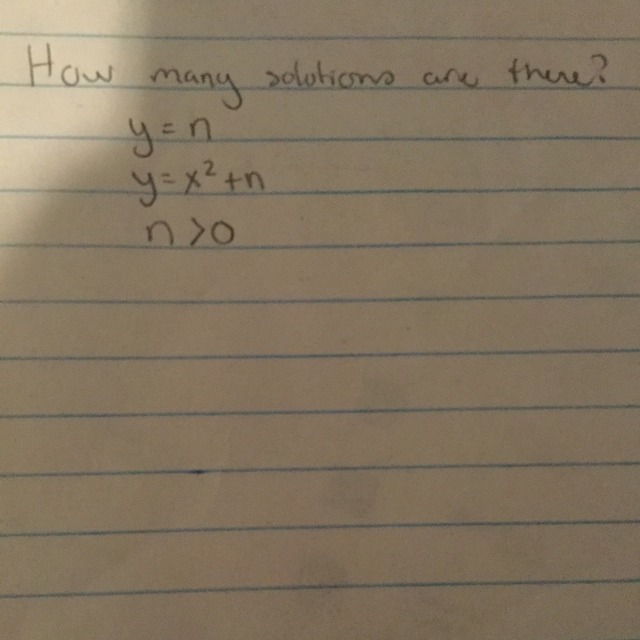 How many solutions are there?
y=n
y=x²+n
n>0